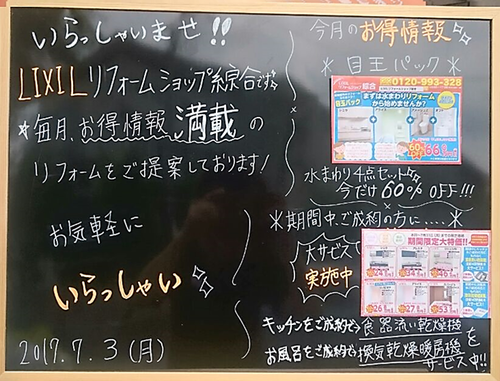 いらっしゃいませ!!
LIXILリフォームショップ綜合です。
*毎月、お得情報満載の
リフォームをご提案しております!
お気軽に
いらっしゃい
2017.7.3(月)
今月のお得情報
*目玉パック*
綜合 0120-993-328
目玉パック
まずは水まわりリフォームから始めませんか?
60%
66.
水まわり4点セットが
今だけ60% OFF!!!
*期間中、ご成約の方に....*
大サービス
実施中
期間限定大特価!!
キッチンをご成約で、食器洗い乾燥機
お風呂をご成約で、換気乾燥暖房機を
サービス中!!